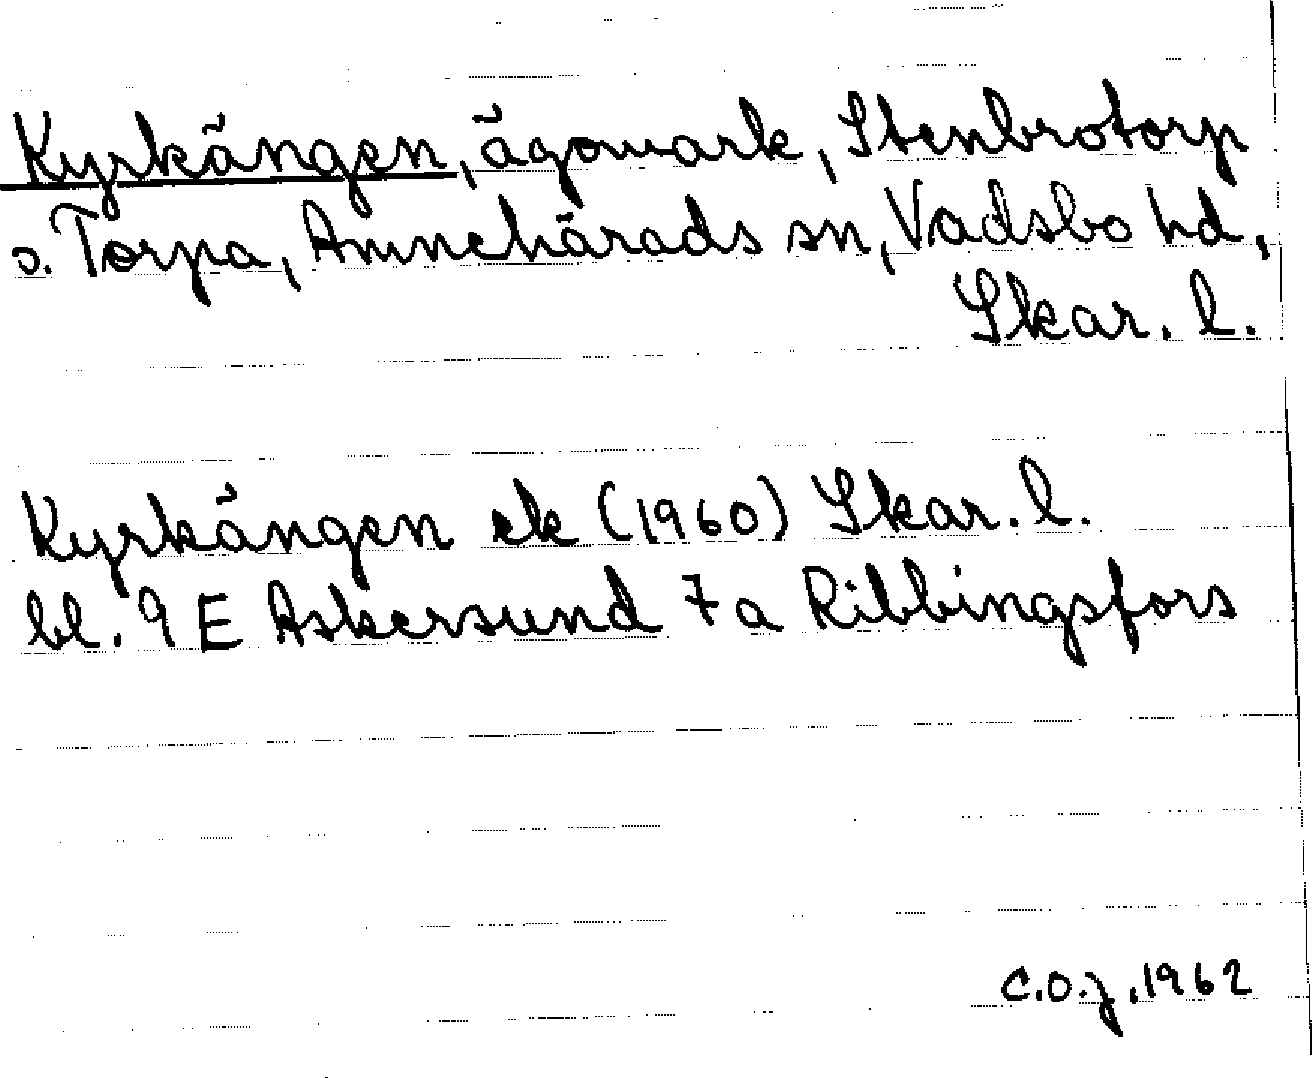 Kyrkängen, ägomark, Stenbrotorp
o. Torpa, Amnehärads sn, Vadsbo hd,
Skar. l.
Kyrkängen ek (1960) Skar. l.
bl. 9 E Askersund 7a Ribbingsfors
C.O.J. 1962